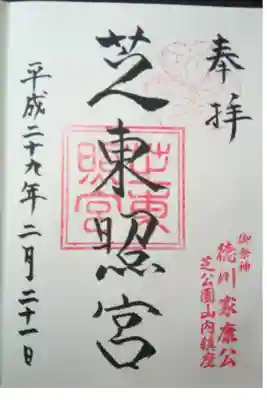 奉拝
御祭神
徳川家康公
芝公園山内鎮座
芝東照宮
芝東照宮
平成二十九年二月二十一日